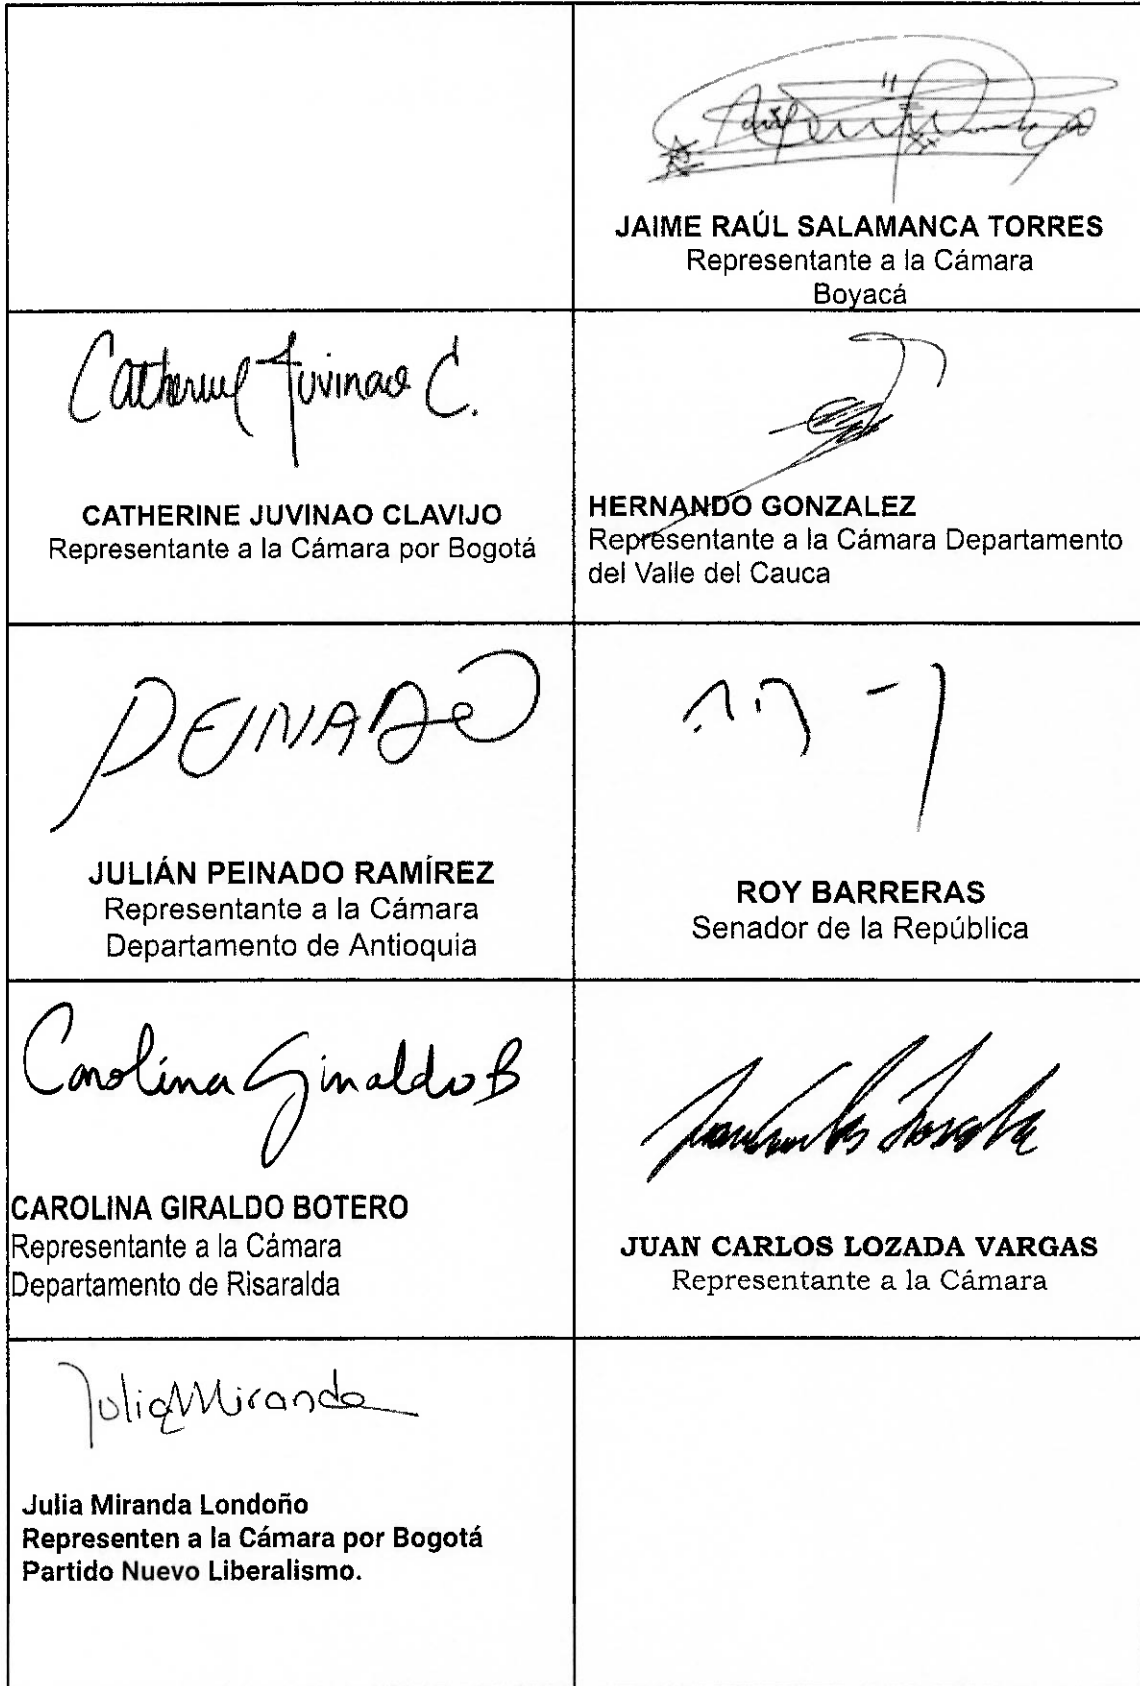 JAIME RAÚL SALAMANCA TORRES
Representante a la Cámara
Boyacá
Catherine Juvinao C.
CATHERINE JUVINAO CLAVIJO
Representante a la Cámara por Bogotá
HERNANDO GONZALEZ
Representante a la Cámara Departamento
del Valle del Cauca
PEINADO
JULIÁN PEINADO RAMÍREZ
Representante a la Cámara
Departamento de Antioquia
ROY BARRERAS
Senador de la República
Carolina Giraldo B
CAROLINA GIRALDO BOTERO
Representante a la Cámara
Departamento de Risaralda
Juan Carlos Lozada
JUAN CARLOS LOZADA VARGAS
Representante a la Cámara
Julia Miranda
Julia Miranda Londoño
Representen a la Cámara por Bogotá
Partido Nuevo Liberalismo.